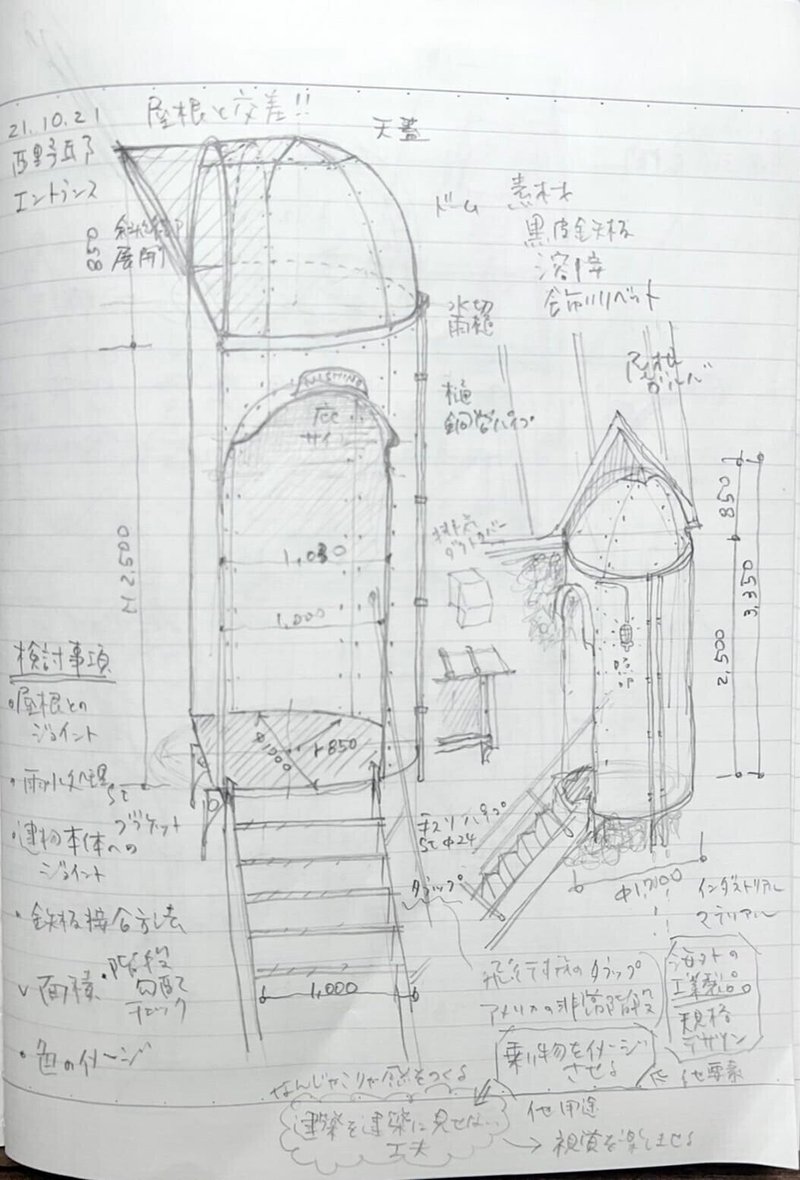 21.10.21
屋根と交差!!
天蓋
西野邸
エントランス
ドーム
素材
黒皮鉄板
溶接
飾りリベット
850
展開
水切
雨樋
NISHINO
庇
サイン
樋
鋼管パイプ
屋根
ダクトカバー
1,030
1,000
H 2500
850
3,350
2,500
検討事項
・屋根との
ジョイント
・雨水処理
・建物本体への
ジョイント
・鉄板接合方法
✓面積
・階段
勾配
チェック
・色のイメージ
φ1700
r 850
ST
ブラケット
手スリパイプ
ST φ24
タラップ
φ1,700
インダストリアル
マテリアル
1,000
飛行機のタラップ
アメリカの非常階段
海外の
工業製品
規格
デザイン
乗り物をイメージ
させる
⇐ 他要素
なんじゃこりゃ感をつくる
建築を建築に見せない
工夫
他用途
→ 視覚を楽しませる